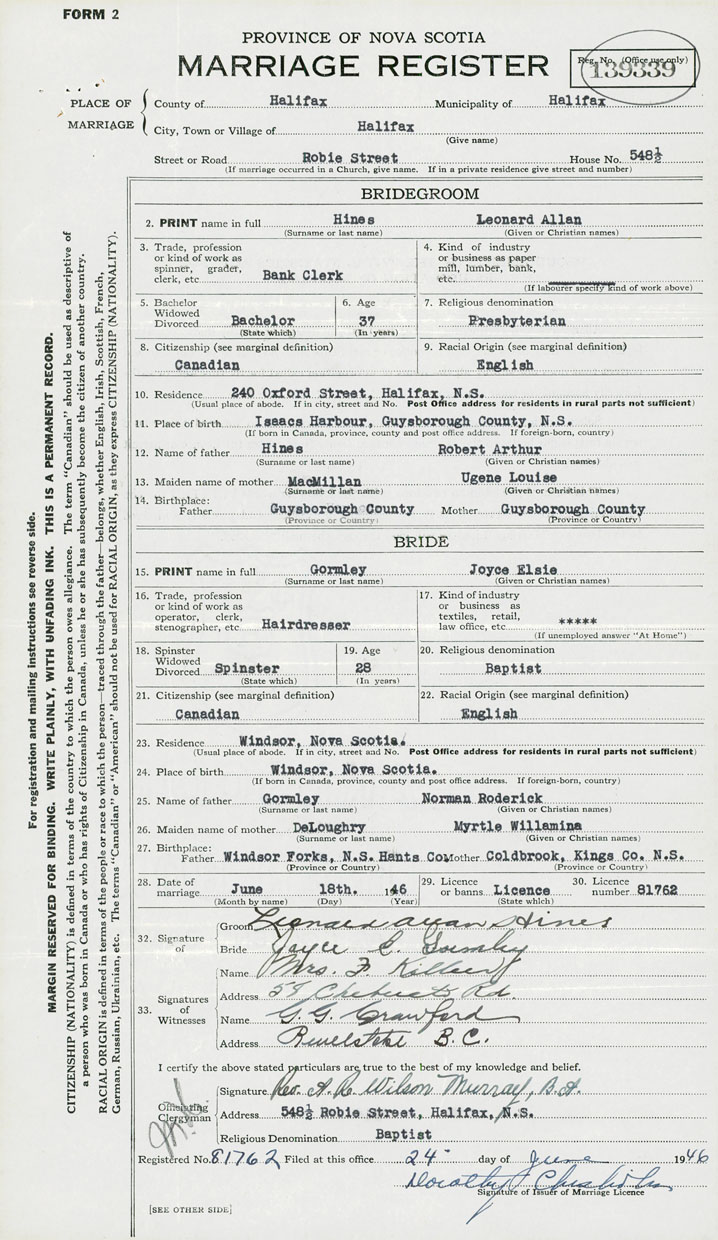 FORM 2
PROVINCE OF NOVA SCOTIA
MARRIAGE REGISTER
Reg. No. (Office use only)
139339
PLACE OF MARRIAGE
County of Halifax Municipality of Halifax
City, Town or Village of Halifax
(Give name)
Street or Road Robie Street House No. 548½
(If marriage occurred in a Church, give name. If in a private residence give street and number)
BRIDEGROOM
2. PRINT name in full Hines Leonard Allan
(Surname or last name) (Given or Christian names)
3. Trade, profession or kind of work as spinner, grader, clerk, etc. Bank Clerk
4. Kind of industry or business as paper mill, lumber, bank, etc.
(If labourer specify kind of work above)
5. Bachelor Widowed Divorced Bachelor
(State which)
6. Age 37
(In years)
7. Religious denomination
Presbyterian
8. Citizenship (see marginal definition)
Canadian
9. Racial Origin (see marginal definition)
English
10. Residence 240 Oxford Street, Halifax, N.S.
(Usual place of abode. If in city, street and No. Post Office address for residents in rural parts not sufficient)
11. Place of birth Isaacs Harbour, Guysborough County, N.S.
(If born in Canada, province, county and post office address. If foreign-born, country)
12. Name of father Hines Robert Arthur
(Surname or last name) (Given or Christian names)
13. Maiden name of mother MacMillan Ugene Louise
(Surname or last name) (Given or Christian names)
14. Birthplace:
Father Guysborough County Mother Guysborough County
(Province or Country) (Province or Country)
BRIDE
15. PRINT name in full Gormley Joyce Elsie
(Surname or last name) (Given or Christian names)
16. Trade, profession or kind of work as operator, clerk, stenographer, etc. Hairdresser
17. Kind of industry or business as textiles, retail, law office, etc. *****
(If unemployed answer "At Home")
18. Spinster Widowed Divorced Spinster
(State which)
19. Age 28
(In years)
20. Religious denomination
Baptist
21. Citizenship (see marginal definition)
Canadian
22. Racial Origin (see marginal definition)
English
23. Residence Windsor, Nova Scotia.
(Usual place of abode. If in city, street and No. Post Office address for residents in rural parts not sufficient)
24. Place of birth Windsor, Nova Scotia.
(If born in Canada, province, county and post office address. If foreign-born, country)
25. Name of father Gormley Norman Roderick
(Surname or last name) (Given or Christian names)
26. Maiden name of mother DeLoughry Myrtle Willamina
(Surname or last name) (Given or Christian names)
27. Birthplace:
Father Windsor Forks, N.S. Hants Co. Mother Coldbrook, Kings Co. N.S.
(Province or Country) (Province or Country)
28. Date of marriage June 18th. 1946
(Month by name) (Day) (Year)
29. Licence or banns Licence
(State which)
30. Licence number 81762
32. Signature of
Groom Leonard Allan Hines
Bride Joyce E. Gormley
33. Signatures of Witnesses
Name Mrs. F.
Address Rd.
Name G. G. Crawford
Address B.C.
I certify the above stated particulars are true to the best of my knowledge and belief.
Officiating Clergyman
Signature Rev. A. R. Wilson Murray, B.A.
Address 548½ Robie Street, Halifax, N.S.
Religious Denomination Baptist
Registered No. 81762 Filed at this office 24 day of June 1946
Dorothy Chisholm
Signature of Issuer of Marriage Licence
[SEE OTHER SIDE]
For registration and mailing instructions see reverse side.
MARGIN RESERVED FOR BINDING. WRITE PLAINLY, WITH UNFADING INK. THIS IS A PERMANENT RECORD.
CITIZENSHIP (NATIONALITY) is defined in terms of the country to which the person owes allegiance. The term "Canadian" should be used as descriptive of
a person who was born in Canada or who has rights of Citizenship in Canada, unless he or she has subsequently become the citizen of another country.
RACIAL ORIGIN is defined in terms of the people or race to which the person—traced through the father—belongs, whether English, Irish, Scottish, French,
German, Russian, Ukrainian, etc. The terms "Canadian" or "American" should not be used for RACIAL ORIGIN, as they express CITIZENSHIP (NATIONALITY).